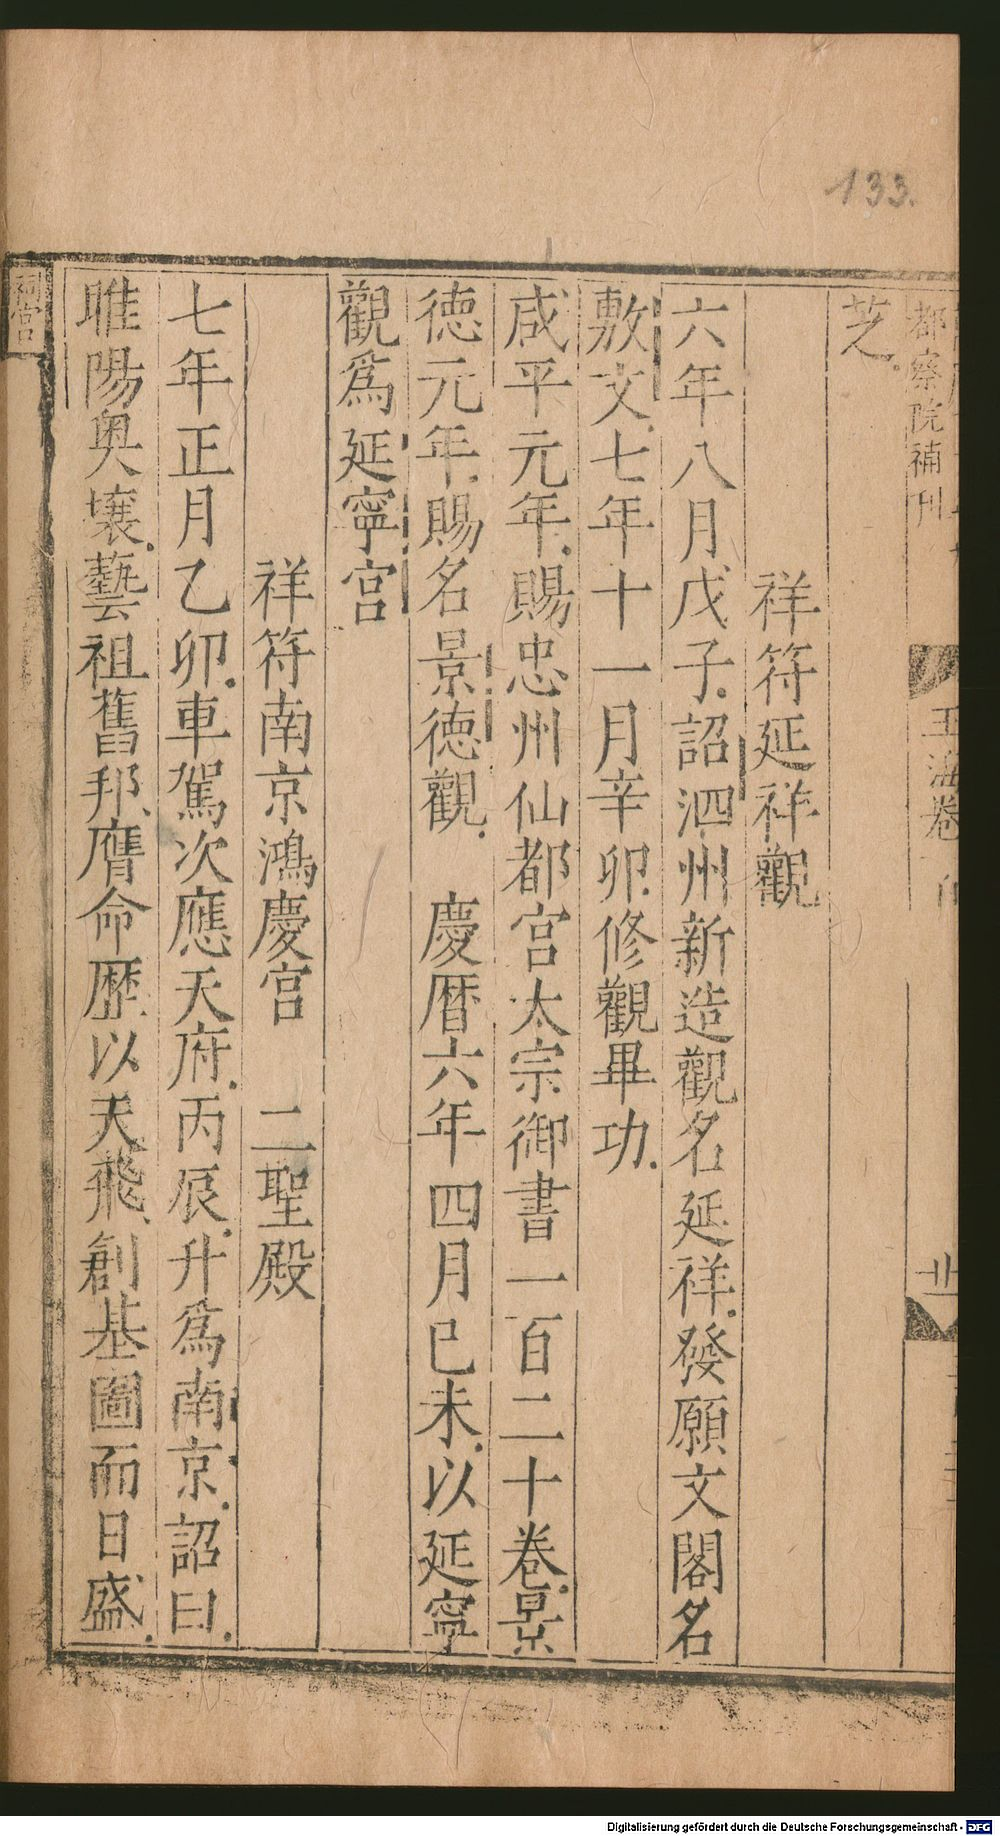 133.
都察院補刊
玉海卷一百
芝
祥符延祥觀
六年八月戊子詔泗州新造觀名延祥發願文閣名
敷文七年十一月辛卯修觀畢功
咸平元年賜忠州仙都宮太宗御書一百二十卷景
德元年賜名景德觀 慶曆六年四月已未以延寧
觀爲延寧宮
祥符南京鴻慶宮 二聖殿
七年正月乙卯車駕次應天府丙辰升爲南京詔曰
睢陽奥壤藝祖舊邦膺命歷以天飛創基圖而日盛
祠宮
Digitalisierung gefördert durch die Deutsche Forschungsgemeinschaft - DFG